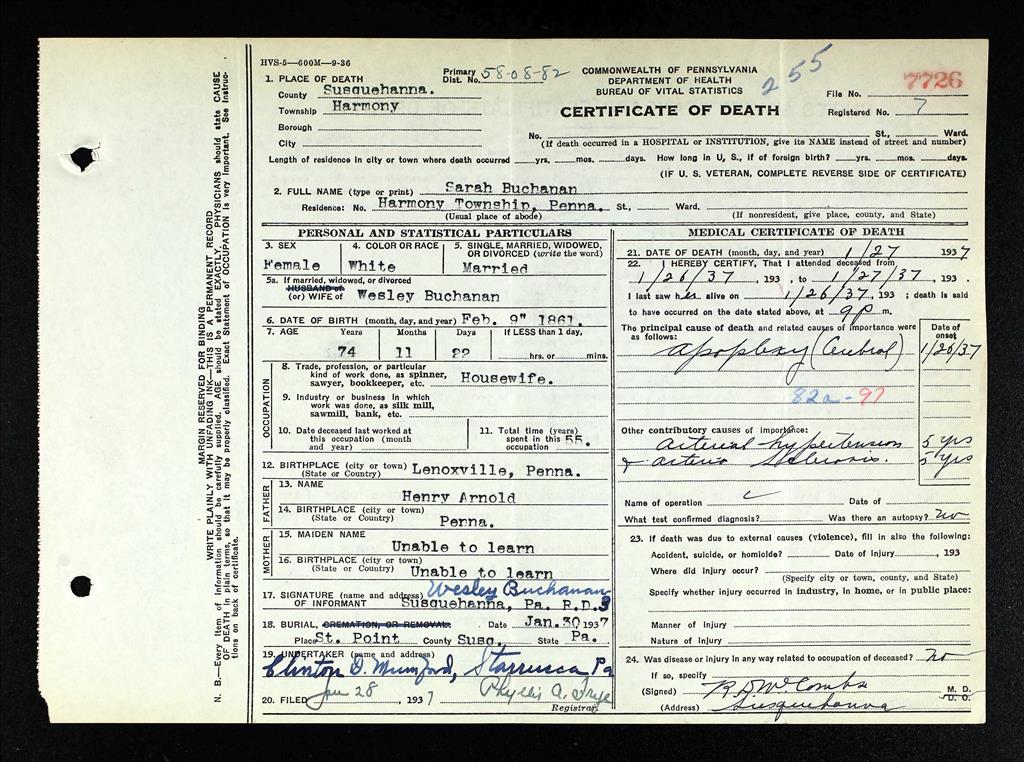 HVS-5—600M—9-36
1. PLACE OF DEATH
County Susquehanna.
Township Harmony
Borough
City
Primary Dist. No. 58-08-82
COMMONWEALTH OF PENNSYLVANIA
DEPARTMENT OF HEALTH
BUREAU OF VITAL STATISTICS
CERTIFICATE OF DEATH
255
7726
File No.
Registered No. 7
No. St., Ward.
(If death occurred in a HOSPITAL or INSTITUTION, give its NAME instead of street and number)
Length of residence in city or town where death occurred yrs. mos. days. How long in U, S., if of foreign birth? yrs. mos. days.
(IF U. S. VETERAN, COMPLETE REVERSE SIDE OF CERTIFICATE)
2. FULL NAME (type or print) Sarah Buchanan
Residence: No. Harmony Township, Penna. St., Ward.
(Usual place of abode) (If nonresident, give place, county, and State)
PERSONAL AND STATISTICAL PARTICULARS
3. SEX Female
4. COLOR OR RACE White
5. SINGLE, MARRIED, WIDOWED, OR DIVORCED (write the word) Married
5a. If married, widowed, or divorced
HUSBAND of
(or) WIFE of Wesley Buchanan
6. DATE OF BIRTH (month, day, and year) Feb. 9" 1861.
7. AGE Years Months Days If LESS than 1 day,
74 11 22 hrs. or mins.
OCCUPATION
8. Trade, profession, or particular kind of work done, as spinner, sawyer, bookkeeper, etc. Housewife.
9. Industry or business in which work was done, as silk mill, sawmill, bank, etc.
10. Date deceased last worked at this occupation (month and year)
11. Total time (years) spent in this occupation 55.
12. BIRTHPLACE (city or town) Lenoxville, Penna.
(State or Country)
FATHER
13. NAME Henry Arnold
14. BIRTHPLACE (city or town)
(State or Country) Penna.
MOTHER
15. MAIDEN NAME Unable to learn
16. BIRTHPLACE (city or town)
(State or Country) Unable to learn
17. SIGNATURE (name and address) Wesley Buchanan
OF INFORMANT Susquehanna, Pa. R.D.3
18. BURIAL, CREMATION, OR REMOVAL. Date Jan.30 1937
Place St. Point County Susq. State Pa.
19. UNDERTAKER (name and address)
Clinton D. Mumford, Starrucca Pa
20. FILED Jan 28, 1937 Phyllis A.
Registrar.
MEDICAL CERTIFICATE OF DEATH
21. DATE OF DEATH (month, day, and year) 1/27 1937
22. I HEREBY CERTIFY, That I attended deceased from
1/26/37, 193 , to 1/27/37, 193 .
I last saw her alive on 1/26/37, 193 ; death is said
to have occurred on the date stated above, at 9 P m.
The principal cause of death and related causes of importance were as follows:
Date of onset
Apoplexy (Cerebral) 1/26/37
82a - 97
Other contributory causes of importance:
Arterial hypertension 5 yrs
& arterio sclerosis. 5 yrs
Name of operation Date of
What test confirmed diagnosis? Was there an autopsy? no
23. If death was due to external causes (violence), fill in also the following:
Accident, suicide, or homicide? Date of injury , 193
Where did injury occur?
(Specify city or town, county, and State)
Specify whether injury occurred in industry, in home, or in public place:
Manner of injury
Nature of injury
24. Was disease or injury in any way related to occupation of deceased? No
If so, specify
(Signed) R D McCombs M. D.
D. O.
(Address) Susquehanna
MARGIN RESERVED FOR BINDING
WRITE PLAINLY WITH UNFADING INK—THIS IS A PERMANENT RECORD
N. B.—Every item of information should be carefully supplied. AGE should be stated EXACTLY. PHYSICIANS should state CAUSE
OF DEATH in plain terms, so that it may be properly classified. Exact Statement of OCCUPATION is very important. See Instruc-
tions on back of certificate.